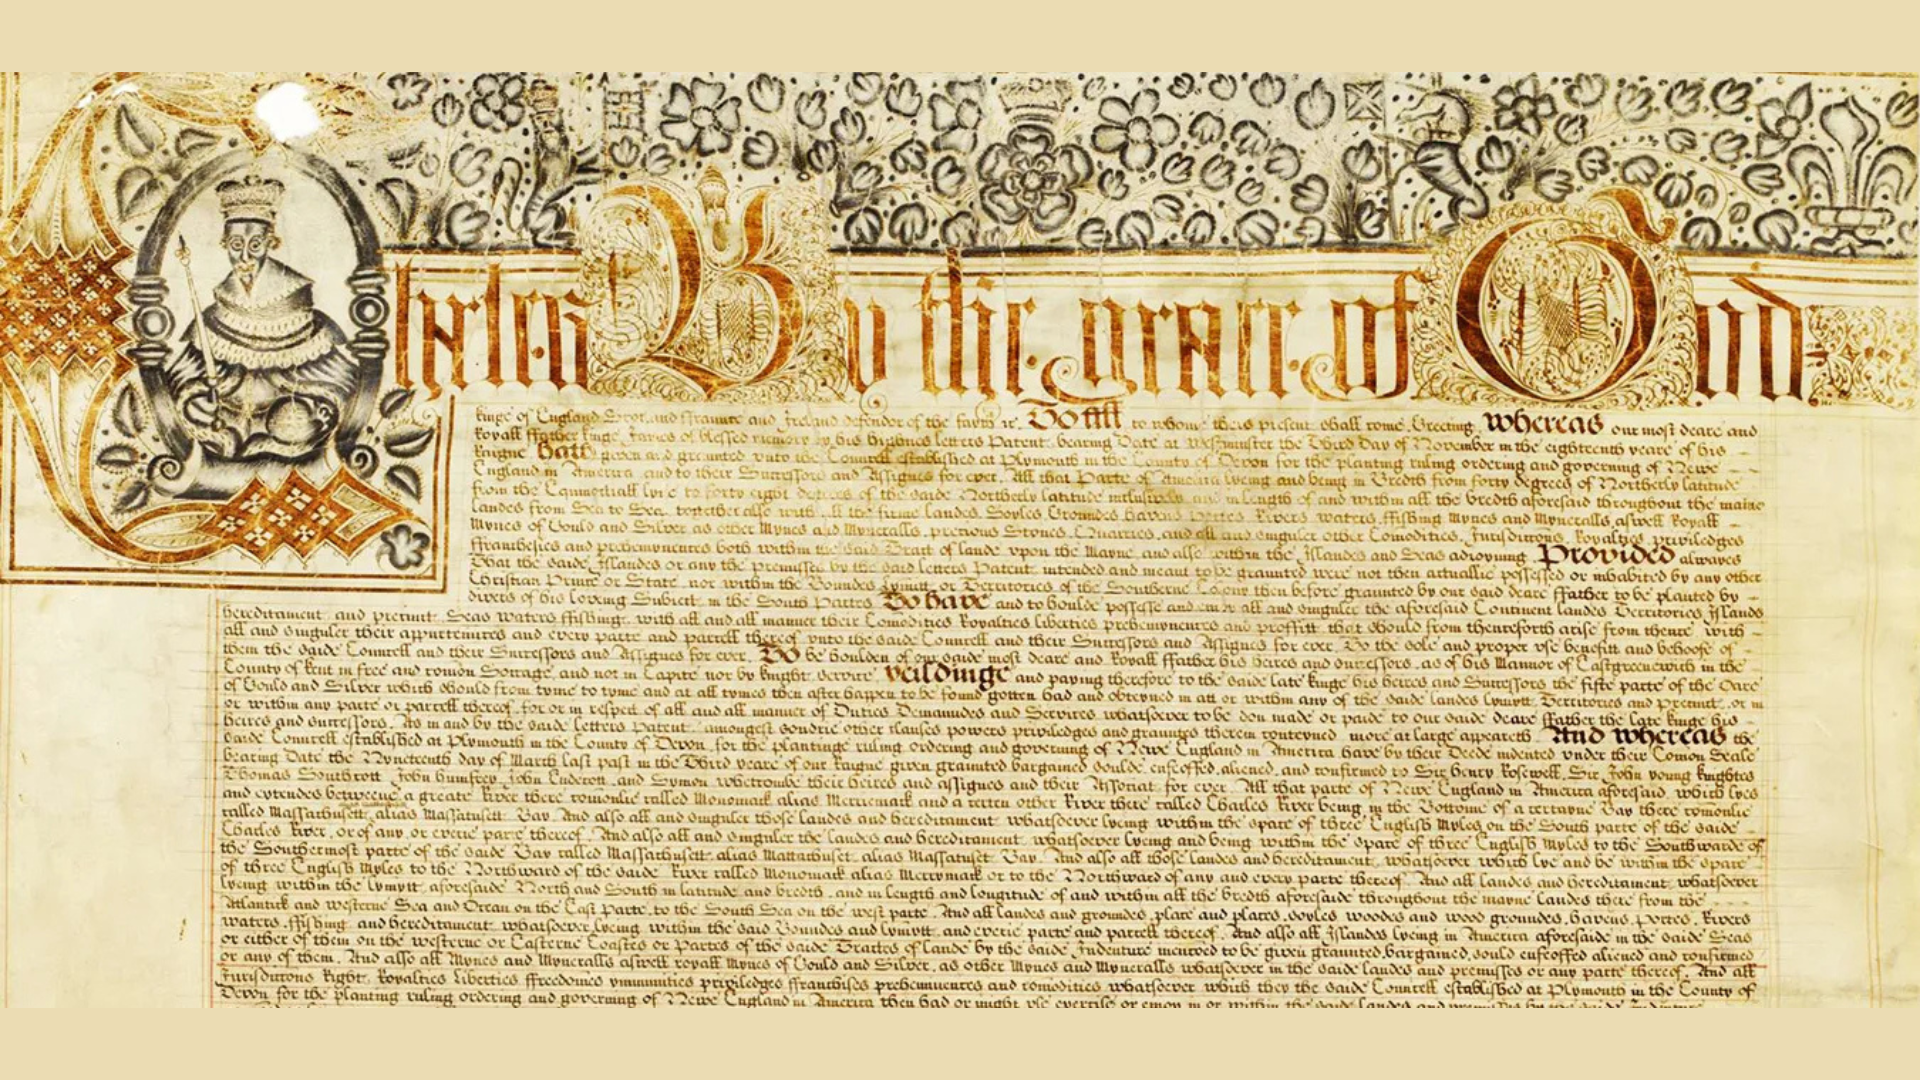 Charles By the grace of God
kinge of England Scotland ffraunce and Ireland defendor of the fayth &c. To all to whome theis present shall come Greeting, Whereas our most deare and
Royall ffather kinge James of blessed memory by his highnes letters Patent bearing Date at Westminster the Third day of November in the eighteenth yeare of his
Raigne Hath given and graunted vnto the Councell established at Plymouth in the County of Devon for the planting ruling ordering and governing of Newe
England in America and to their Successors and Assignes for ever. All that Parte of America lyeing and being in Bredth from forty degrees of Northerly latitude
from the Equinoctiall lyne to forty eight degrees of the saide Northerly latitude inclusively and in length of and within all the bredth aforesaid throughout the maine
landes from Sea to Sea. together also with all the firme landes, Soyles Groundes havens Portes Rivers waters ffishing Mynes and Myneralls, aswell Royall
Mynes of Gould and Silver as other Mynes and Myneralls, precious Stones, Quarries, and all and singuler other Comodities, Jurisdictions, Royalties priviledges
ffranchesies and prehemynences both within the said Tract of lande vpon the Mayne, and also within the Islandes and Seas adioyning Provided alwayes
That the saide Islandes or any the premisses by the said letters Patent intended and meant to be graunted were not then actuallie possessed or inhabited by any other
Christian Prince or State, nor within the Boundes lymitt or Territories of the Southerne Colony then before graunted by our said deare ffather to be planted by
divers of his loveing Subiect in the South Partes To have and to houlde possesse and enioy all and singuler the aforesaid Continent landes Territories Islandes
hereditament and precinct, Seas Waters ffishing, with all and all manner their Comodities Royalties liberties prehemynences and proffitt that should from thenceforth arise from thence with
all and singuler their appurtenances and every parte and parcell thereof vnto the saide Councell and their Successors and Assignes for ever. To the sole and proper vse benefitt and behoofe of
them the saide Councell and their Successors and Assignes for ever. To be houlden of our saide most deare and Royall ffather his heires and successors, as of his Mannor of Eastgreenewich in the
County of kent in free and comon Soccage, and not in Capite nor by knight service Yeildinge and paying therefore to the saide late kinge his heires and Successors the fifte parte of the Oare
of Gould and Silver which should from tyme to tyme and at all tymes then after happen to be found gotten had and obteyned in att or within any of the saide landes lymytt, Territories and precinct, or in
or within any parte or parcell thereof, for or in respect of all and all manner of Duties Demaundes and Services whatsoever to be don made or paide to our saide deare ffather the late kinge his
heires and successors. As in and by the saide letters Patent amongest sondrie other clauses powers priviledges and grauntes therein conteyned more at large appeareth And whereas the
saide Councell established at Plymouth in the County of Devon, for the plantinge ruling ordering and governing of Newe England in America have by their Deede indented vnder their Comon Seale
bearing Date the Nyneteenth day of March last past in the Third yeare of our Raigne given graunted bargained soulde, enfeoffed, aliened, and confirmed to Sir henry Rosewell, Sir John young knightes
Thomas Southcott, John humfrey, John Endecott, and Symon whetcombe their heires and assignes and their Associat for ever. All that parte of Newe England in America aforesaid, which lyes
and extendes betweene a greate River there comonlie called Monomack alias Merriemack and a certen other River there called Charles River being in the Bottome of a certayne Bay there comonlie
called Massachusett, alias Mattachusett, Bay. And also all and singuler those landes and hereditament whatsoever lyeing within the space of three English Myles on the South parte of the saide
Charles River, or of any, or everie parte thereof. And also all and singuler the landes and hereditament, whatsoever lyeing and being within the space of three English Myles to the Southwarde of
the Southermost parte of the saide Bay called Massachusett, alias Mattachuset, alias Massatuset Bay. And also all those landes and hereditament, whatsoever which lye and be within the space
of three English Myles to the Northward of the saide River called Monomack alias Merrymack or to the Northward of any and every parte thereof. And all landes and hereditament, whatsoever
lyeing within the lymytt, aforesaide North and South in latitude and bredth, and in length and longitude of and within all the bredth aforesaide throughout the mayne landes there from the
Atlantick and westerne Sea and Ocean on the East Parte, to the South Sea on the west parte. And all landes and groundes, place and places, soyles woodes and wood groundes, havens, Portes, Rivers
waters, ffishing and hereditament, whatsoever lyeing within the said Boundes and lymytt and everie parte and parcell thereof. And also all Islandes lyeing in America aforesaide in the saide Seas
or either of them on the westerne or Easterne Coastes or Partes of the saide Tractes of lande by the saide Indenture menconed to be given graunted, bargained, sould enfeoffed aliened and confirmed
or any of them. And also all Mynes and Myneralls aswell royall Mynes of Gould and Silver, as other Mynes and Myneralls whatsoever in the saide landes and premisses or any parte thereof. And all
Jurisdictions Right, Royalties liberties ffreedomes ymmunities priviledges ffranchises prehemynences and comodities whatsoever which they the saide Councell established at Plymouth in the County of
Devon for the planting ruling ordering and governing of Newe England in America then had or might vse exercise or enioy in or within the saide landes and premisses by the saide